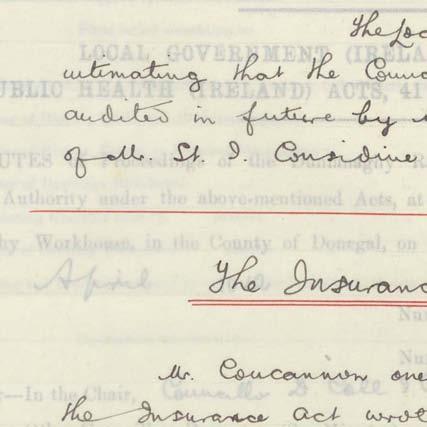 The Loc
LOCAL GOVERNMENT (IRELA
intimating that the Counc
PUBLIC HEALTH (IRELAND) ACTS, 41
audited in future by
of Mr. St. J. Considine
UTES of Proceedings of the Dunfanaghy R
Authority under the above-mentioned Acts, at
hy Workhouse, in the County of Donegal, on
April
The Insuranc
Nu
Nu
Mr. Concannon one
—In the Chair, Councillor D Coll
the Insurance act wrot